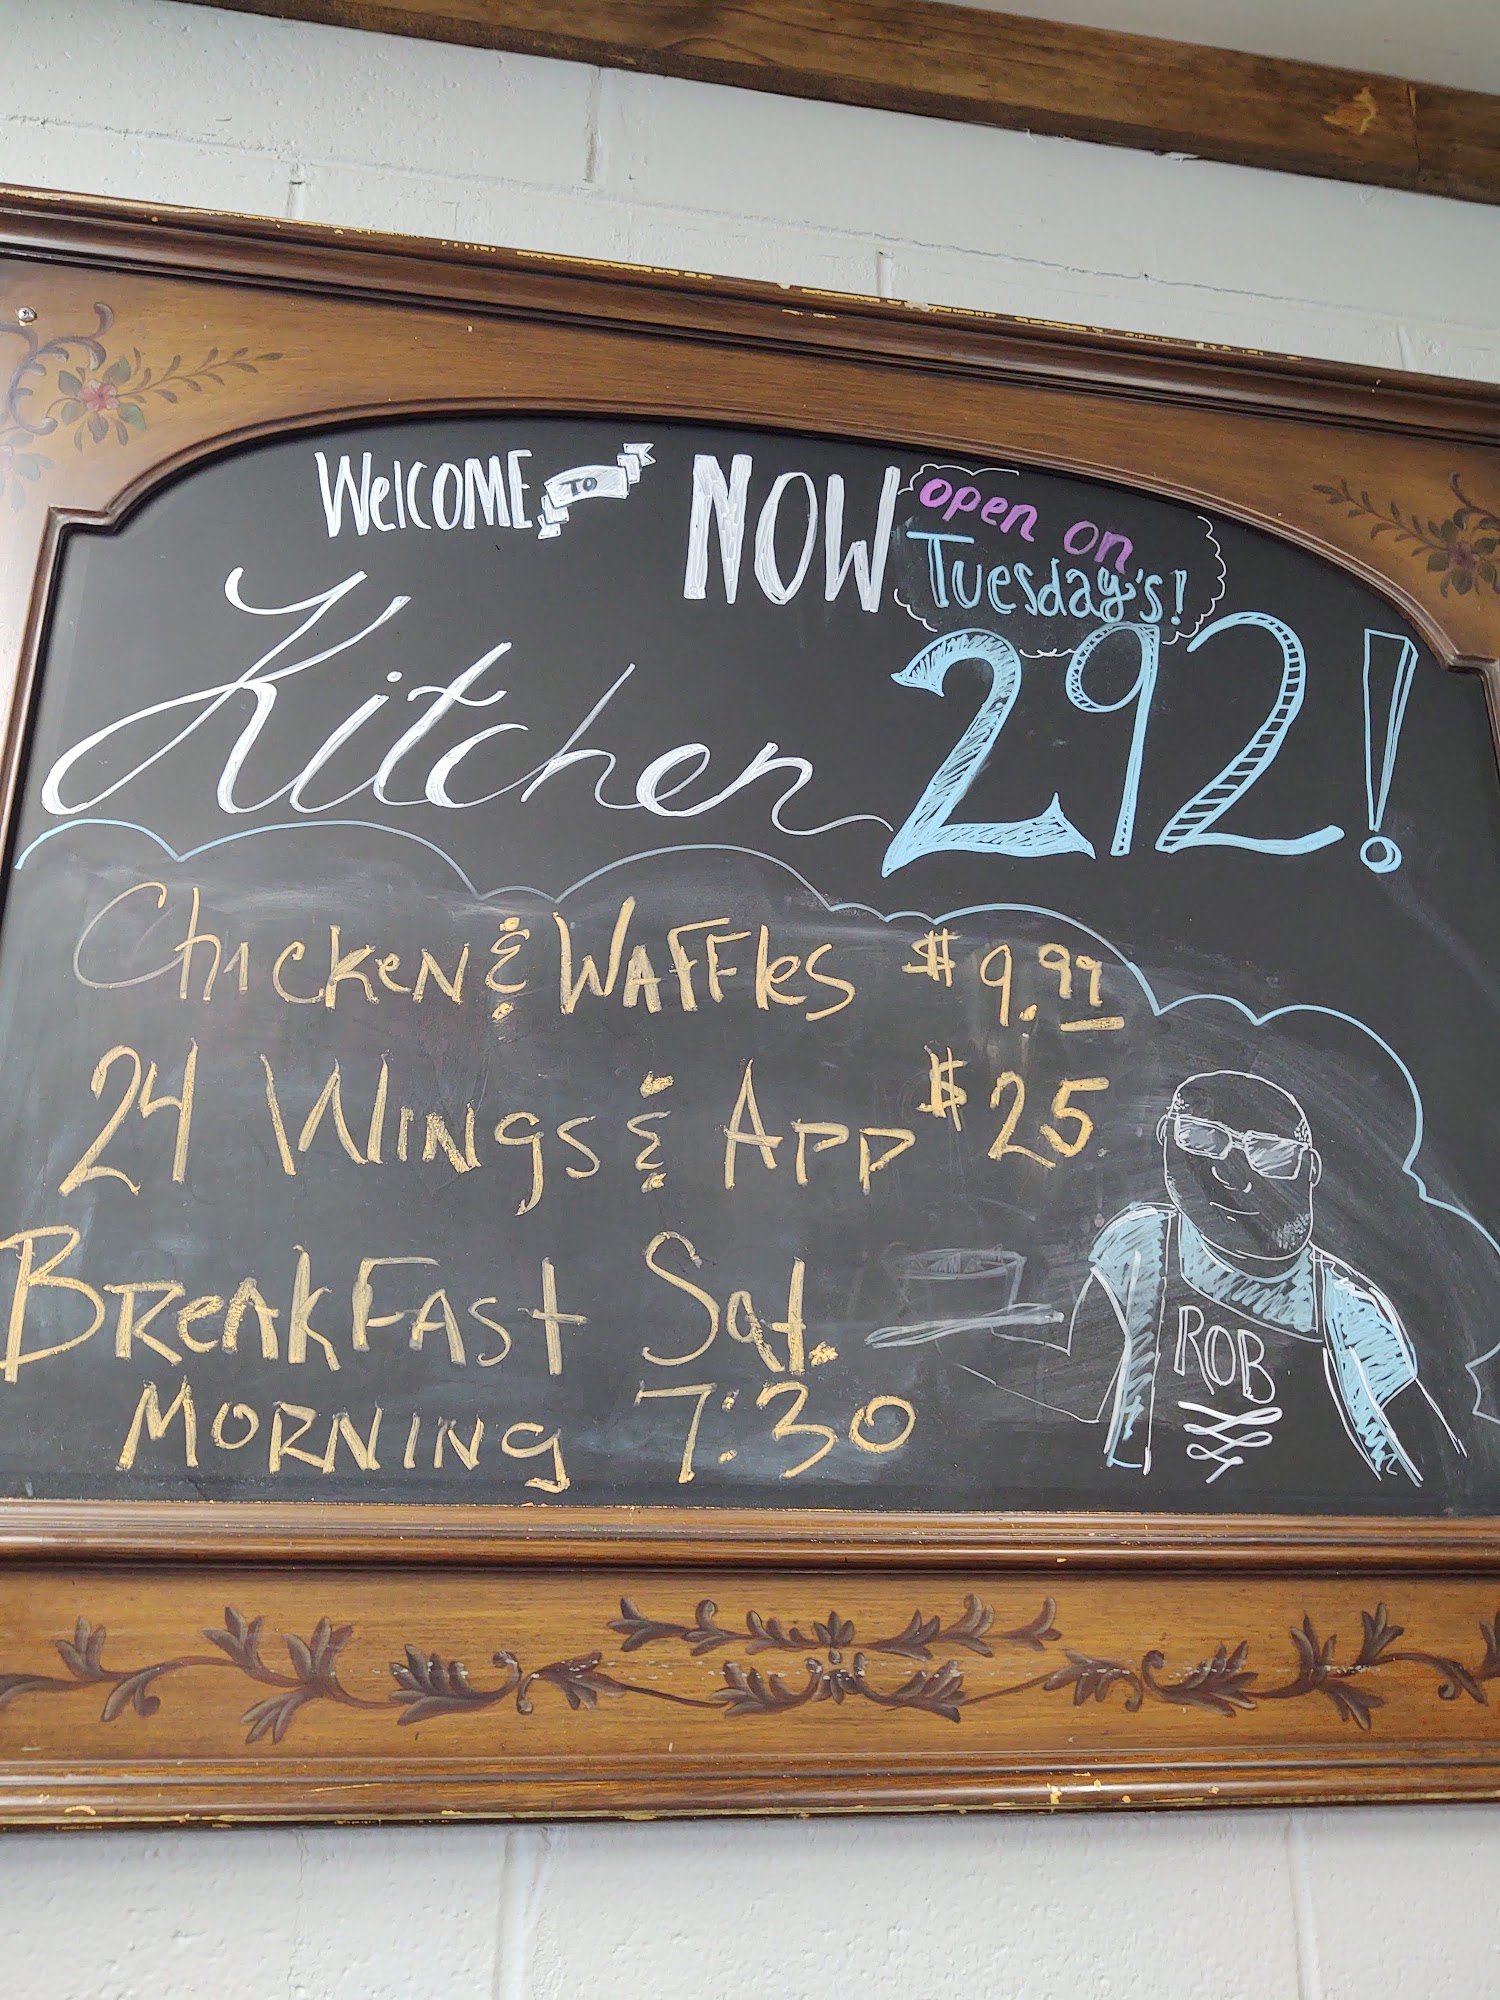 WelCOME TO
NOW open on
Tuesday's!
Kitchen 292!
Chicken & Waffles $9.99
24 Wings & App $25
Breakfast Sat.
Morning 7:30
ROB